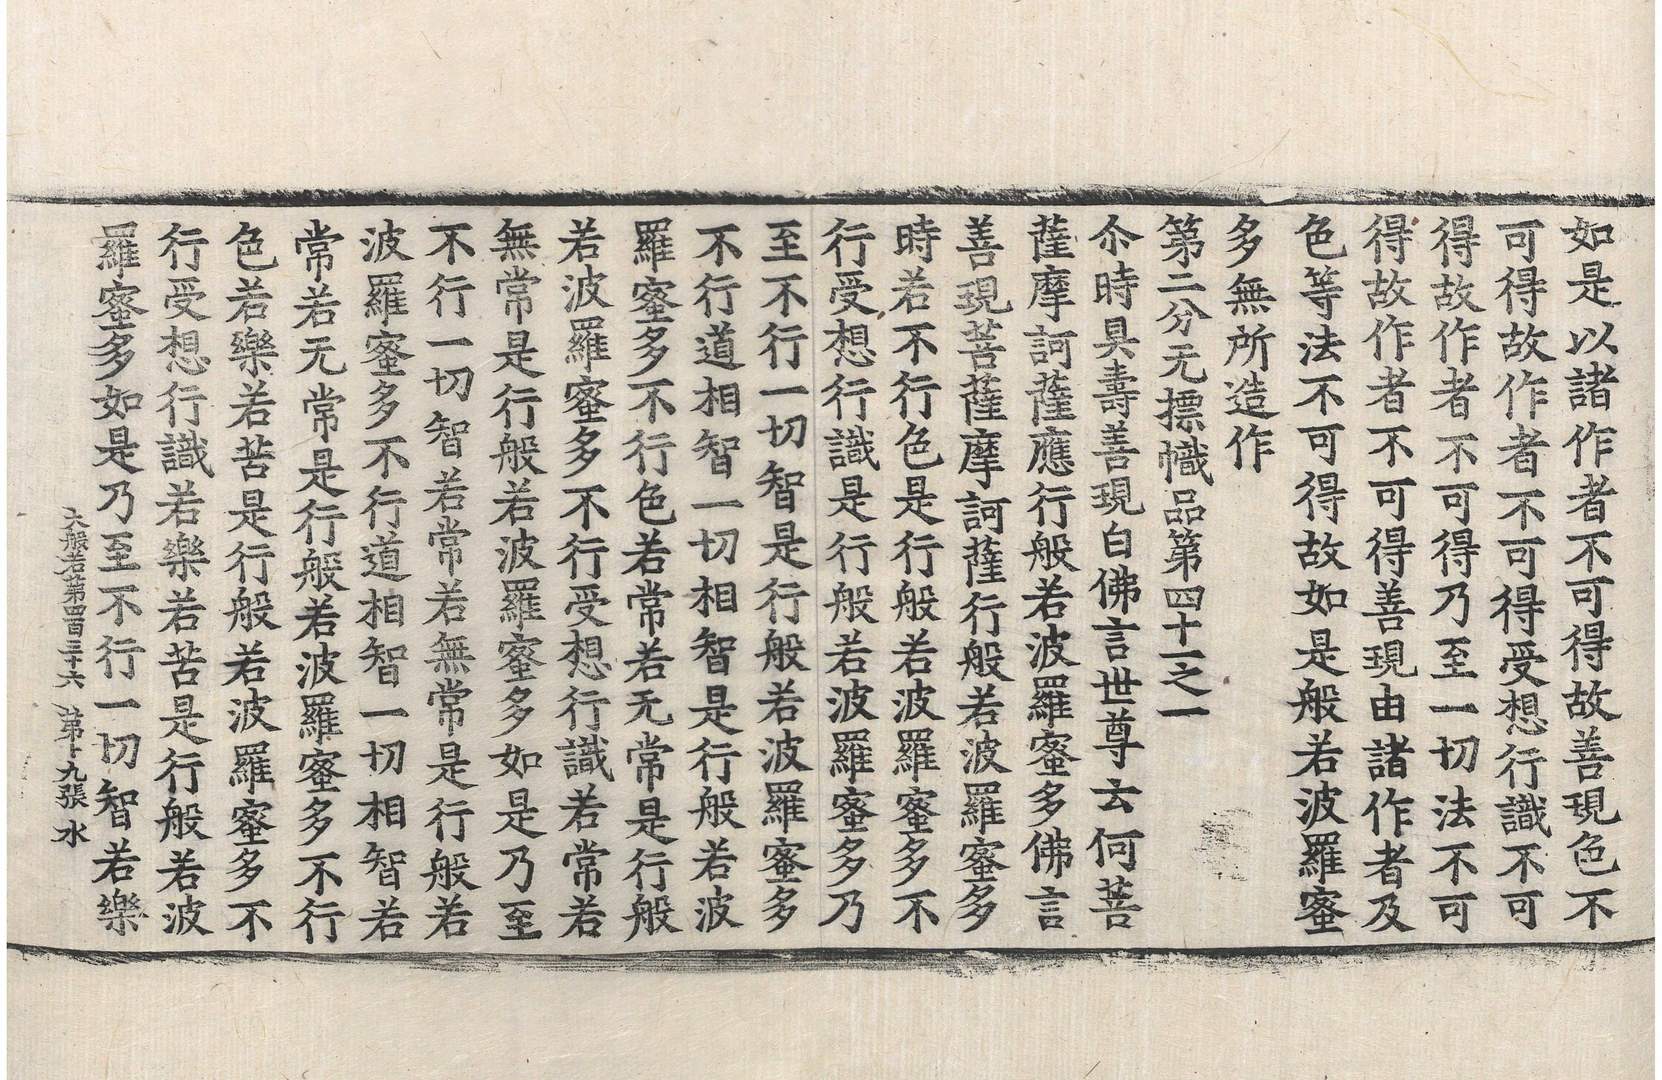 如是以諸作者不可得故善現色不
可得故作者不可得受想行識不可
得故作者不可得乃至一切法不可
得故作者不可得善現由諸作者及
色等法不可得故如是般若波羅蜜
多無所造作
第二分无摽幟品第四十一之一
尒時具壽善現白佛言世尊云何菩
薩摩訶薩應行般若波羅蜜多佛言
善現菩薩摩訶薩行般若波羅蜜多
時若不行色是行般若波羅蜜多不
行受想行識是行般若波羅蜜多乃
至不行一切智是行般若波羅蜜多
不行道相智一切相智是行般若波
羅蜜多不行色若常若无常是行般
若波羅蜜多不行受想行識若常若
無常是行般若波羅蜜多如是乃至
不行一切智若常若無常是行般若
波羅蜜多不行道相智一切相智若
常若无常是行般若波羅蜜多不行
色若樂若苦是行般若波羅蜜多不
行受想行識若樂若苦是行般若波
羅蜜多如是乃至不行一切智若樂
大般若第四百三十六 第十九張 水